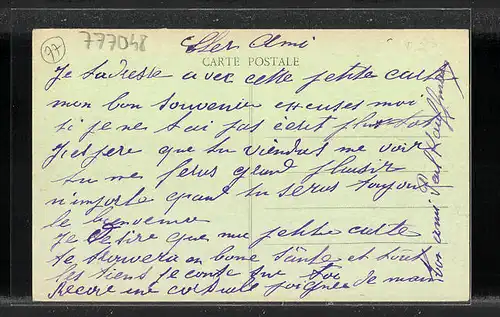 777048
77
Cher Ami
CARTE POSTALE
Je t'adresse avec cette petite carte
mon bon souvenir excuses moi
si je ne t'ai pas écrit plus tot
J'espère que tu viendras me voir
tu me feras grand plaisir
n'importe quant tu seras toujour
le bienvenue
Je désire que ma petite carte
te trouvera en bone santé et tout
les tiens je conte sur toi
Recoie une cordiale poignée de main
Ton ami Paul